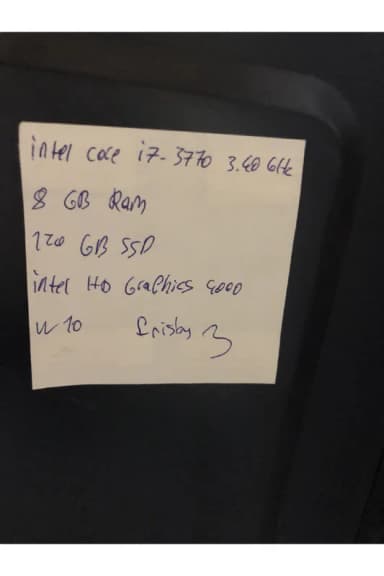 intel core i7-3770 3.40 GHz
8 GB Ram
120 GB SSD
intel HD Graphics 4000
W 10